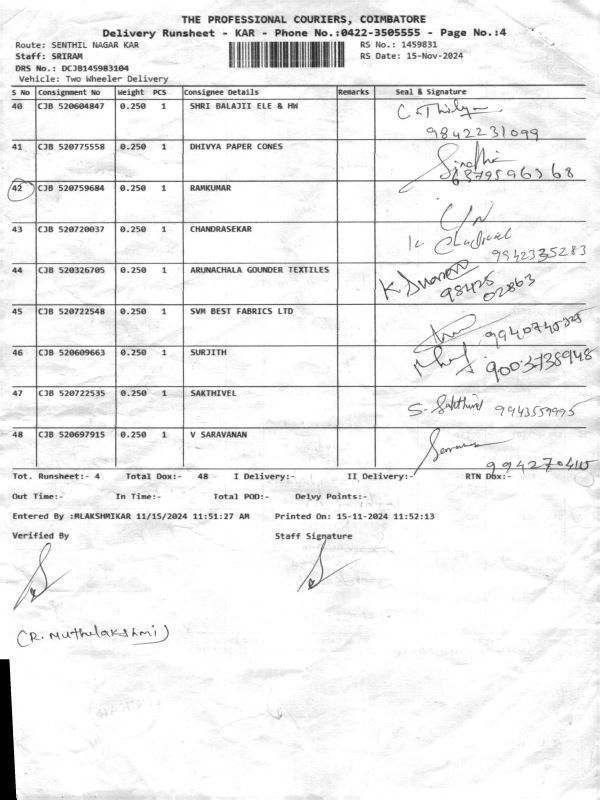 THE PROFESSIONAL COURIERS, COIMBATORE
Delivery Runsheet - KAR - Phone No.:0422-3505555 - Page No.:4
Route: SENTHIL NAGAR KAR RS No.: 1459831
Staff: SRIRAM RS Date: 15-Nov-2024
DRS No.: DCJB145983104
Vehicle: Two Wheeler Delivery
S No Consignment No Weight PCS Consignee Details Remarks Seal & Signature
40 CJB 520604847 0.250 1 SHRI BALAJII ELE & HW
9842231099
41 CJB 775558 0.250 1 DHIVYA PAPER CONES
42 CJB 520759684 0.250 1 RAMKUMAR
43 CJB 520720037 0.250 1 CHANDRASEKAR
9942335283
44 CJB 520326705 0.250 1 ARUNACHALA GOUNDER TEXTILES
98425
02863
45 CJB 520722548 0.250 1 SVM BEST FABRICS LTD
46 CJB 520609663 0.250 1 SURJITH
9003738948
47 CJB 520722535 0.250 1 SAKTHIVEL
S. Sakthivel
48 CJB 520697915 0.250 1 V SARAVANAN
Tot. Runsheet:- 4 Total Dox:- 48 I Delivery:- II Delivery:- RTN Dox:-
Out Time:- In Time:- Total POD:- Delvy Points:-
Entered By :MLAKSHMIKAR 11/15/2024 11:51:27 AM Printed On: 15-11-2024 11:52:13
Verified By Staff Signature
(R. Muthulakshmi)